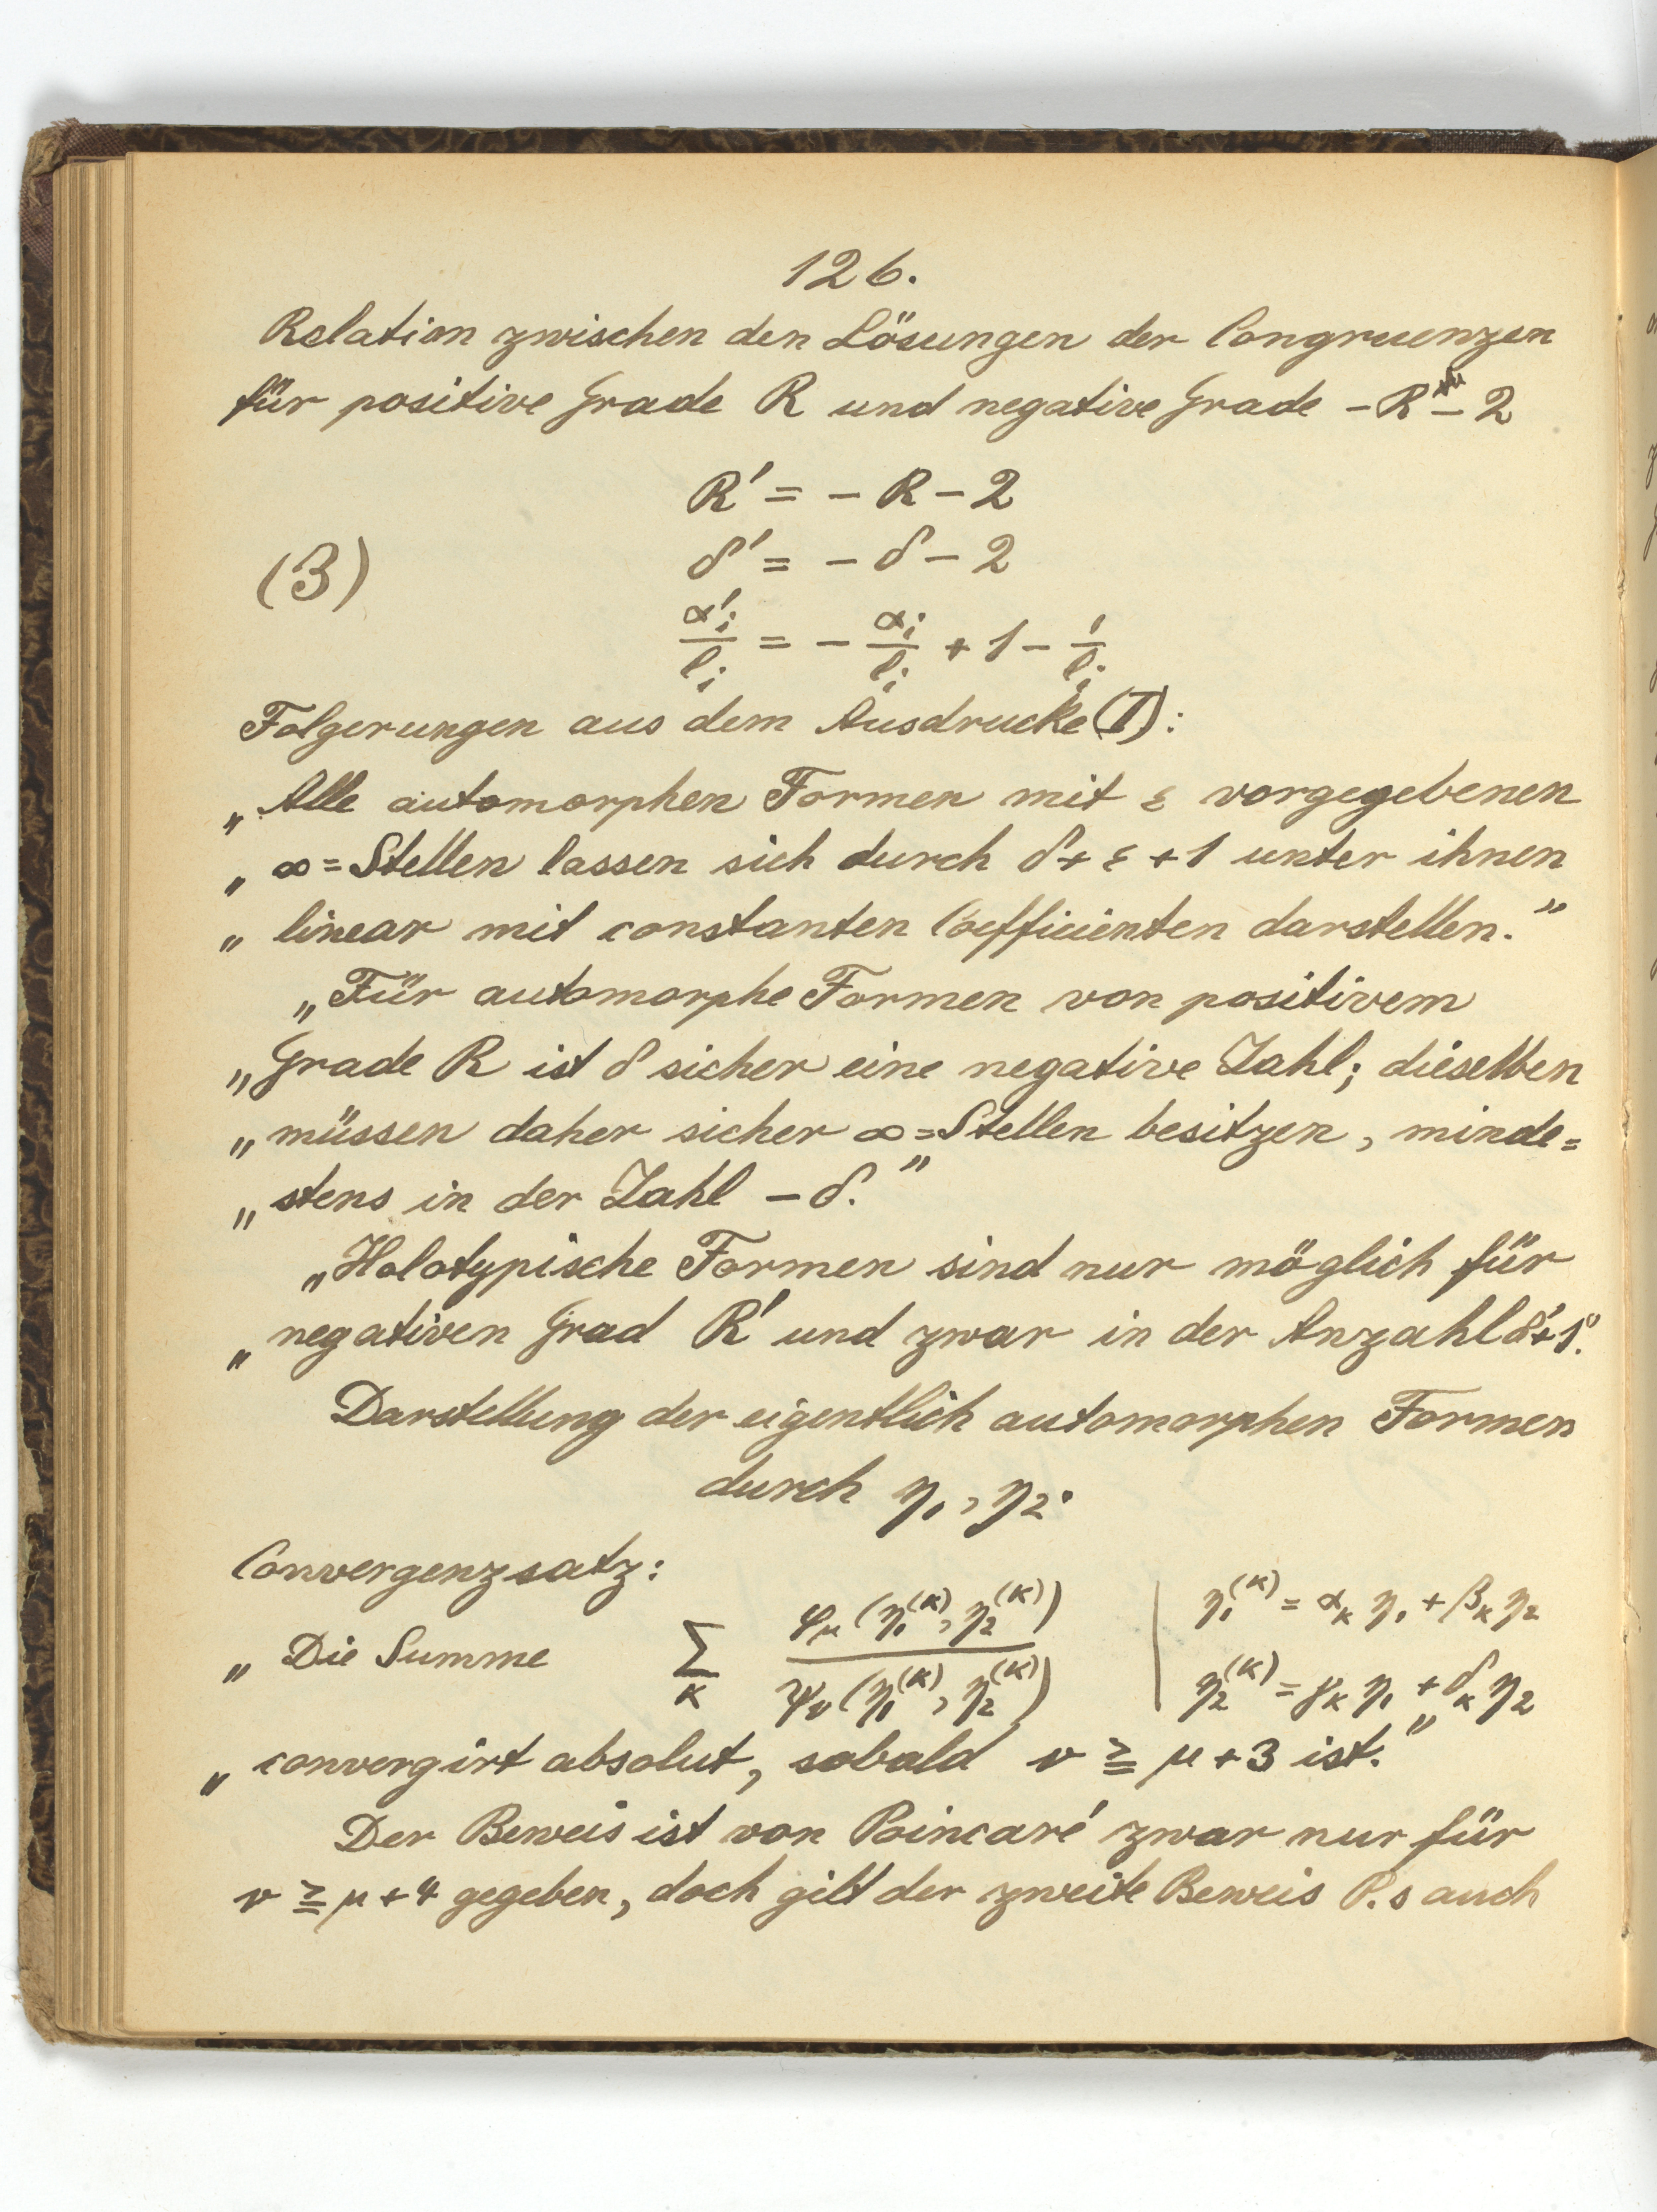 126.
Relation zwischen den Lösungen der Congruenzen
für positive Grade R und negative Grade -R-2
R' = - R - 2
(3) δ' = - δ - 2
α'ᵢ/lᵢ = - αᵢ/lᵢ + 1 - 1/lᵢ
Folgerungen aus dem Ausdrucke (I):
„ Alle automorphen Formen mit ε vorgegebenen
„ ∞=Stellen lassen sich durch δ + ε + 1 unter ihnen
„ linear mit constanten Coefficienten darstellen."
„Für automorphe Formen von positivem
„Grade R ist δ sicher eine negative Zahl; dieselben
„müssen daher sicher ∞=Stellen besitzen, minde=
„stens in der Zahl - δ."
„Holotypische Formen sind nur möglich für
„negativen Grad R' und zwar in der Anzahl δ'+1."
Darstellung der eigentlich automorphen Formen
durch η₁, η₂.
Convergenzsatz:
„ Die Summe Σ_κ φ_μ(η₁^(κ), η₂^(κ)) / ψ_ν(η₁^(κ), η₂^(κ)) | η₁^(κ) = α_κ η₁ + β_κ η₂
η₂^(κ) = γ_κ η₁ + δ_κ η₂
„ convergirt absolut, sobald ν ≧ μ + 3 ist."
Der Beweis ist von Poincaré zwar nur für
ν ≧ μ + 4 gegeben, doch gilt der zweite Beweis P.s auch